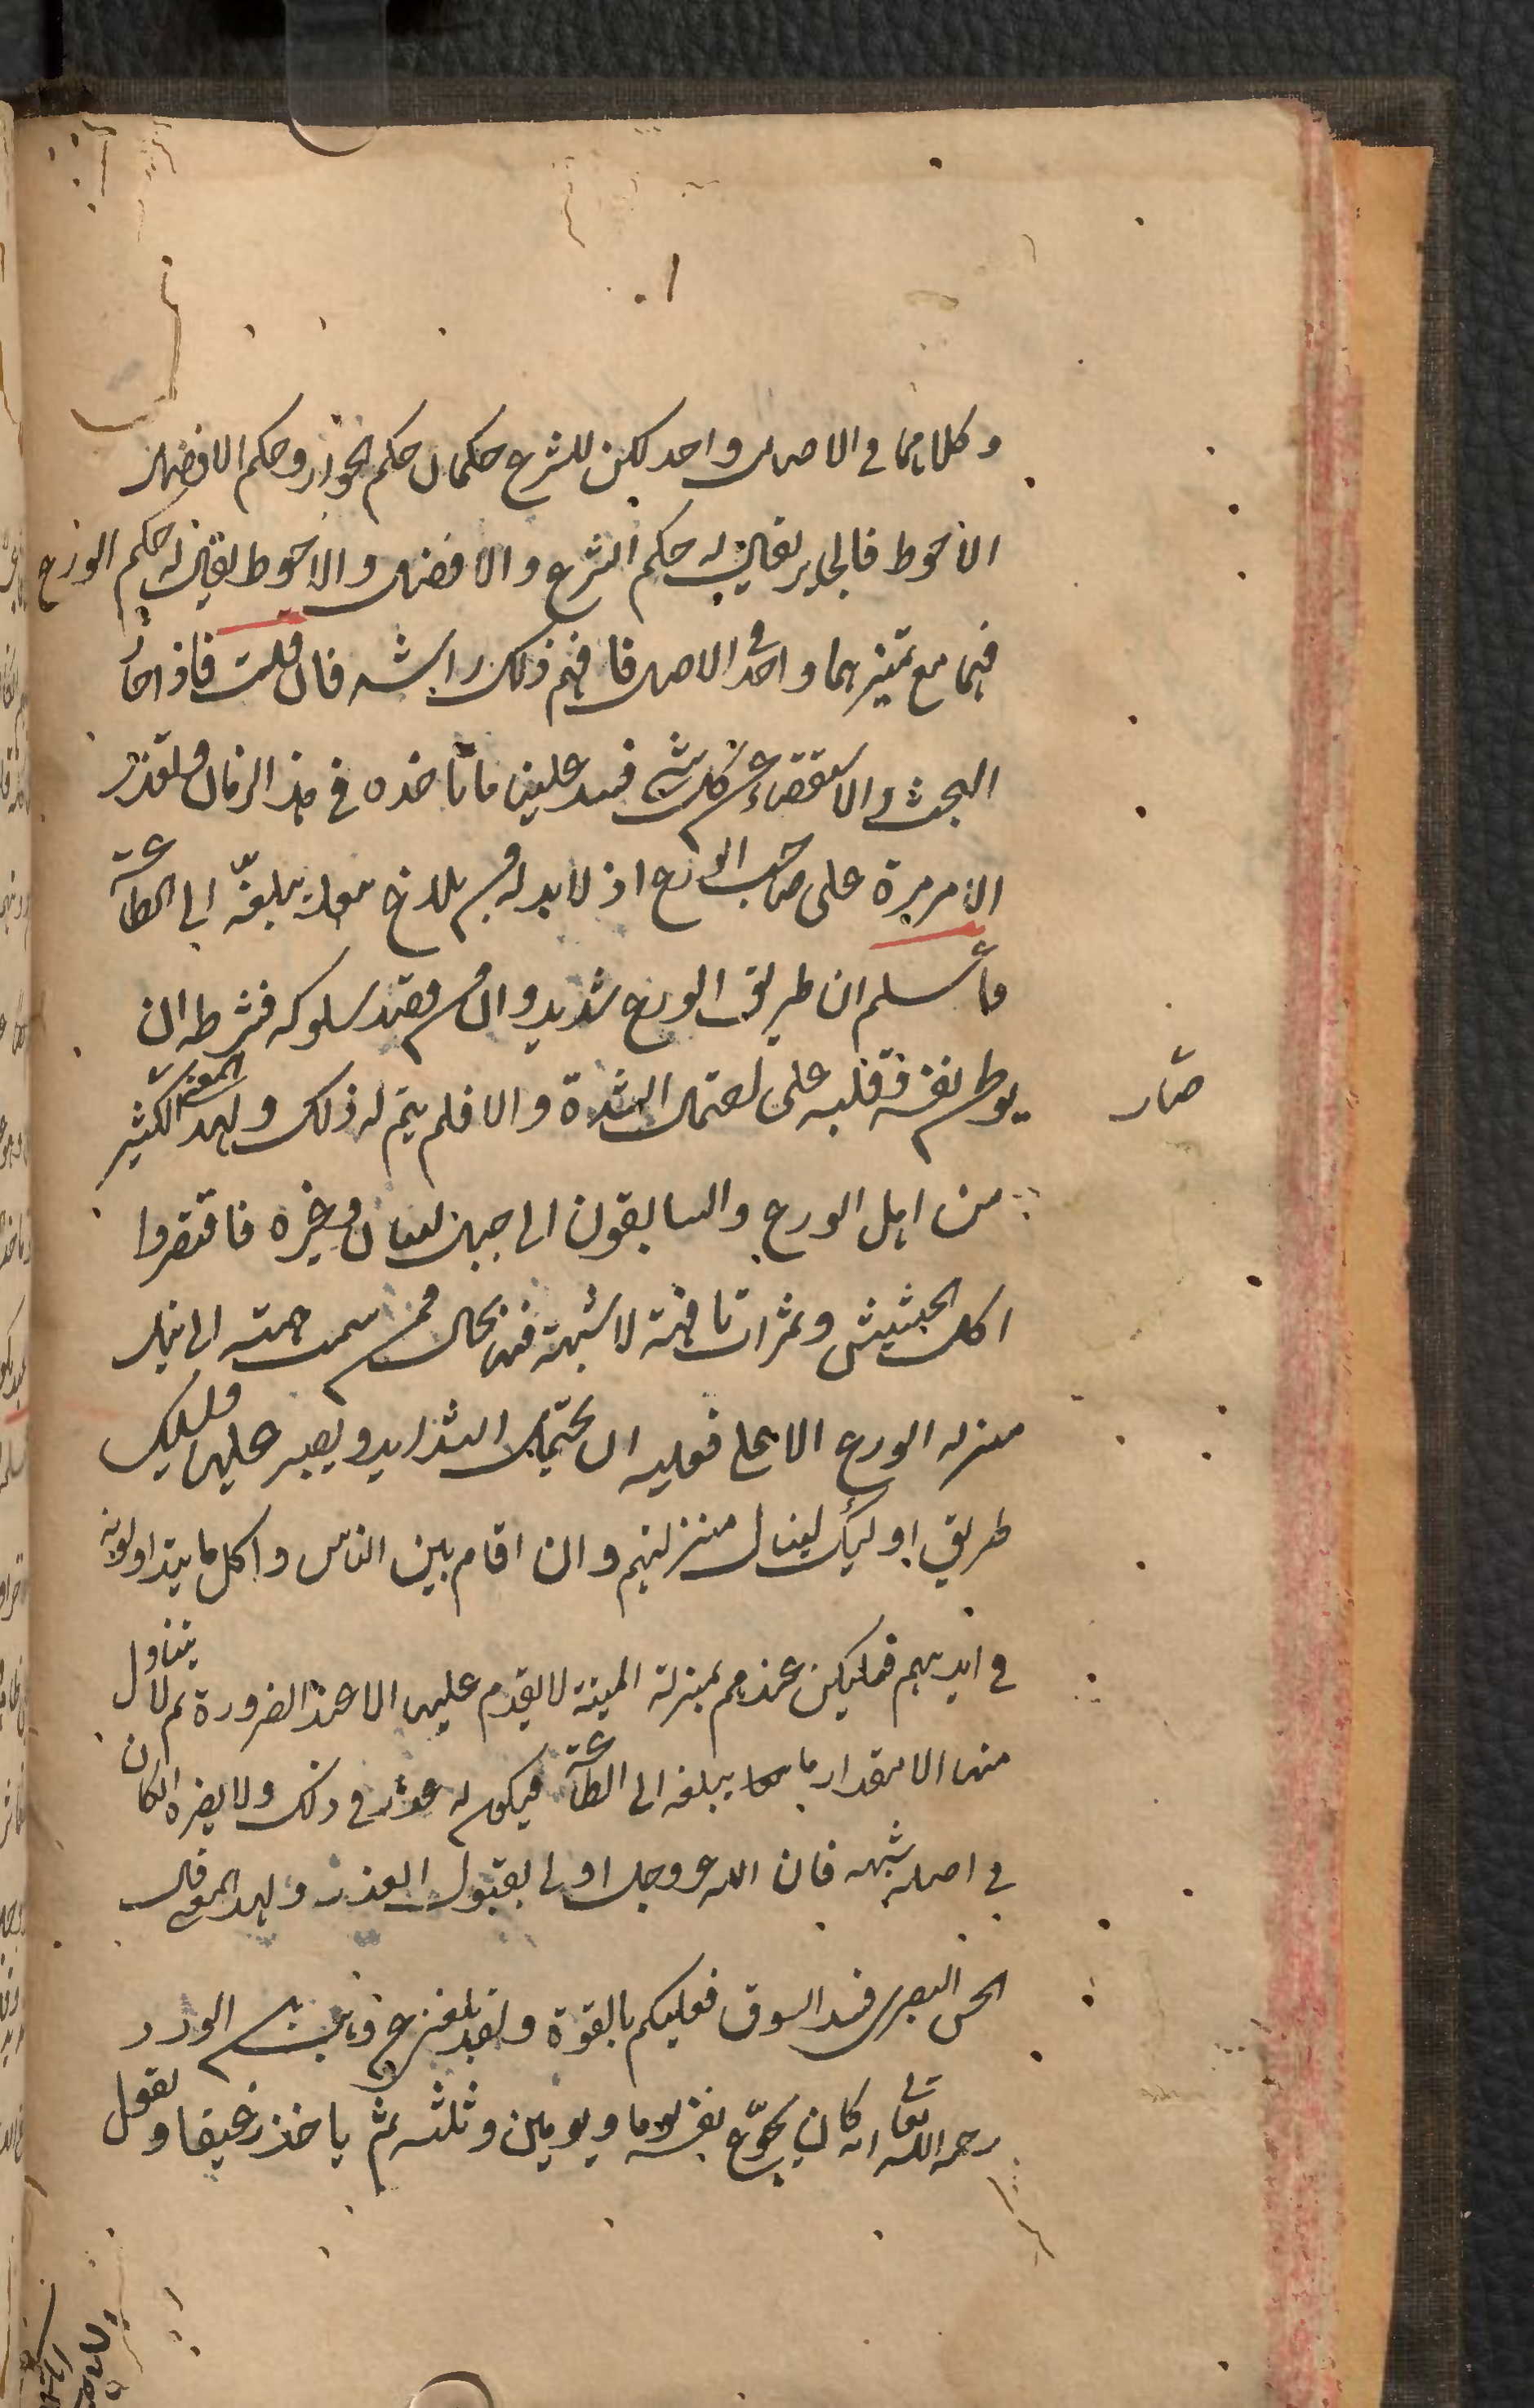 وكلاهما في الاصل واحد لكن للشرع حكمان حكم الجواز وحكم الافضل
الاحوط فالجايز يقال له حكم الشرع والافضل والاحوط يقال له حكم الورع
فهما مع تميزهما واحد في الاصل فافهم ذلك راشدا فان قلت فاذا جاز
البحث والاستقصاء عن كل شي فسد علينا ما نأخذه في هذا الزمان فلتعذر
الامر مرة على صاحب الورع اذ لا بد له من بلاغ يبلغه الى الطاعة
فاعلم ان طريق الورع شديد وان من قصد سلوكه فشرطه ان
يوطن نفسه وقلبه على احتمال الشدة والا فلم يتم له ذلك ولهذا المعنى صار الكثير
من اهل الورع والسابقون الى جبل لبنان وغيره فاقتصروا
اكل الحشيش وثمرات تافهة لا شبهة فيها بحال فمن سمت همته الى نيل
منزلة الورع الاعلى فعليه ان يحتمل الشدايد ويصبر عليها ويسلك
طريق اوليك لينال منزلتهم وان اقام بين الناس واكل ما يتداولونه
في ايديهم فليكن عندهم بمنزلة الميتة لا يقدم عليها الا عند الضرورة ثم لا يتناول
منها الا بمقدار ما يبلغه الى الطاعة فيكون له عذر في ذلك ولا يضره ان كان
في اصله شبهة فان الله عز وجل اولى بقبول العذر ولهذا المعنى قال
الحسن البصري فسد السوق فعليكم بالقوة ولقد بلغني عن وهيب بن الورد
رحمه الله تعالى انه كان يجوّع نفسه يوما ويومين وثلثة ثم ياخذ رغيفا ويقول